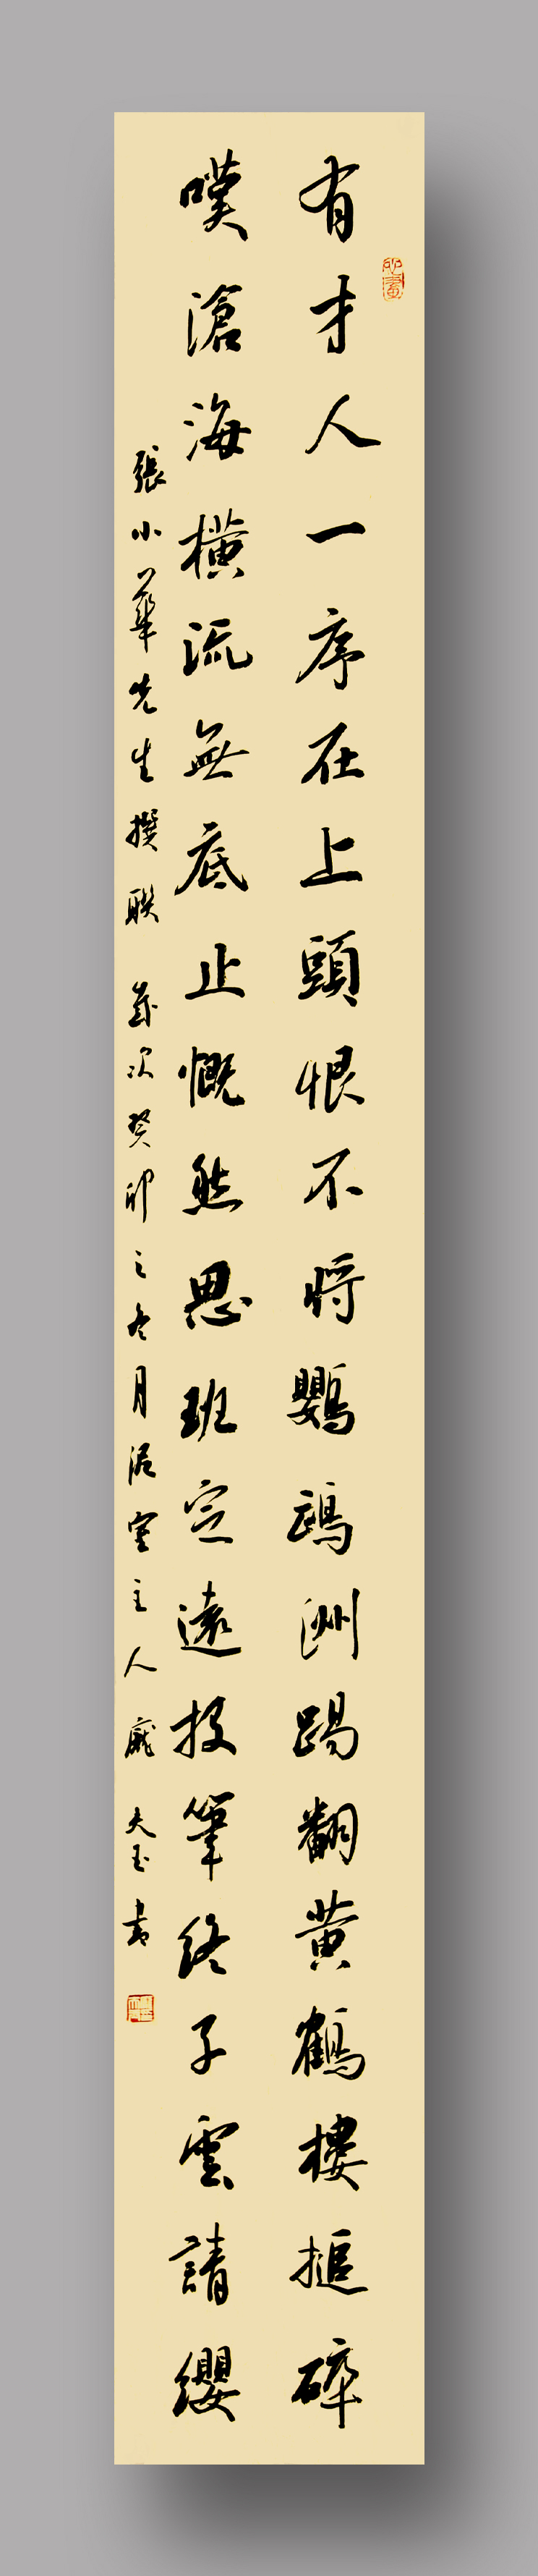 有才人一序在上頭恨不將鸚鵡洲踢翻黄鶴樓搥碎
嘆滄海横流無底止慨然思班定遠投筆終子雲請纓
張小華先生撰聯 歲次癸卯之冬月泥室主人 夫玉書